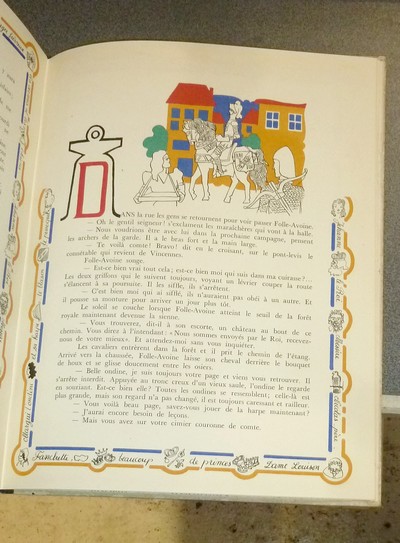 DANS la rue les gens se retournent pour voir passer Folle-Avoine.
— Oh le gentil seigneur ! s'exclament les maraîchères qui vont à la halle.
— Nous voudrions être avec lui dans la prochaine campagne, pensent
les archers de la garde. Il a le bras fort et la main large.
— Te voilà comte ! Bravo ! dit en le croisant, sur le pont-levis le
connétable qui revient de Vincennes.
Folle-Avoine songe.
— Est-ce bien vrai tout cela ; est-ce bien moi qui suis dans ma cuirasse ?...
Les deux griffons qui le suivent toujours, voyant un lévrier couper la route
s'élancent à sa poursuite. Il les siffle, ils s'arrêtent.
— C'est bien moi qui ai sifflé, ils n'auraient pas obéi à un autre. Et
il pousse sa monture pour arriver un jour plus tôt.
Le soleil se couche lorsque Folle-Avoine atteint le seuil de la forêt
royale maintenant devenue la sienne.
— Vous trouverez, dit-il à son escorte, un château au bout de ce
chemin. Vous direz à l'intendant : «Nous sommes envoyés par le Roi, recevez-
nous de votre mieux». Et attendez-moi sans vous inquiéter.
Les cavaliers entrèrent dans la forêt et il prit le chemin de l'étang.
Arrivé vers la chaussée, Folle-Avoine laisse son cheval derrière le bouquet
de houx et se glisse doucement entre les osiers.
— Belle ondine, je suis toujours votre page et viens vous retrouver. Il
s'arrête interdit. Appuyée au tronc creux d'un vieux saule, l'ondine le regarde
en souriant. Est-ce bien elle ? Toutes les ondines se ressemblent, celle-là est
plus grande, mais son regard n'a pas changé, il est toujours caressant et railleur.
— Vous voilà beau page, savez-vous jouer de la harpe maintenant ?
— J'aurai encore besoin de leçons.
— Mais vous avez sur votre cimier couronne de comte.
Fanchette
beaucoup
de primes